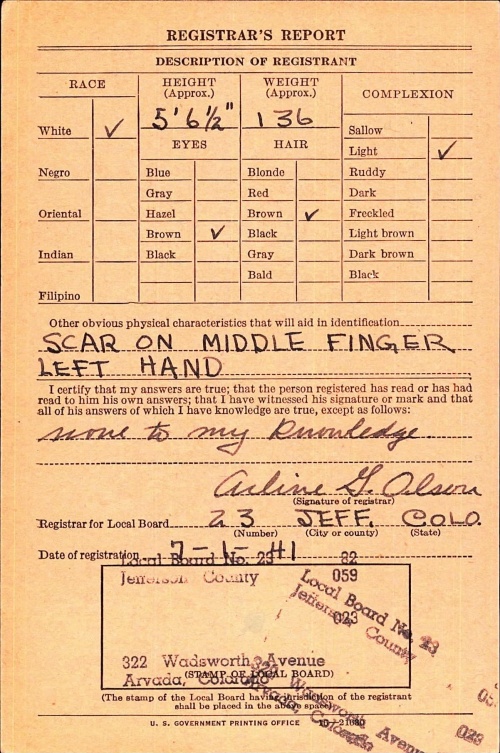 REGISTRAR'S REPORT
DESCRIPTION OF REGISTRANT
RACE
HEIGHT (Approx.)
WEIGHT (Approx.)
COMPLEXION
5' 6½" 136
White ✓
EYES
HAIR
Sallow
Light ✓
Negro
Blue
Blonde
Ruddy
Gray
Red
Dark
Oriental
Hazel
Brown ✓
Freckled
Brown ✓
Black
Light brown
Indian
Black
Gray
Dark brown
Bald
Black
Filipino
Other obvious physical characteristics that will aid in identification
SCAR ON MIDDLE FINGER
LEFT HAND
I certify that my answers are true; that the person registered has read or has had
read to him his own answers; that I have witnessed his signature or mark and that
all of his answers of which I have knowledge are true, except as follows:
none to my knowledge.
Arline G. Olson
(Signature of registrar)
Registrar for Local Board 23 JEFF. COLO.
(Number) (City or county) (State)
Date of registration 7-1-41
Local Board No. 23 82
Jefferson County 059
023
Local Board No. 23
Jefferson County
322 Wadsworth Avenue
(STAMP OF LOCAL BOARD)
Arvada, Colorado
322 Wadsworth Avenue
Arvada, Colorado
023
(The stamp of the Local Board having jurisdiction of the registrant
shall be placed in the above space)
U. S. GOVERNMENT PRINTING OFFICE